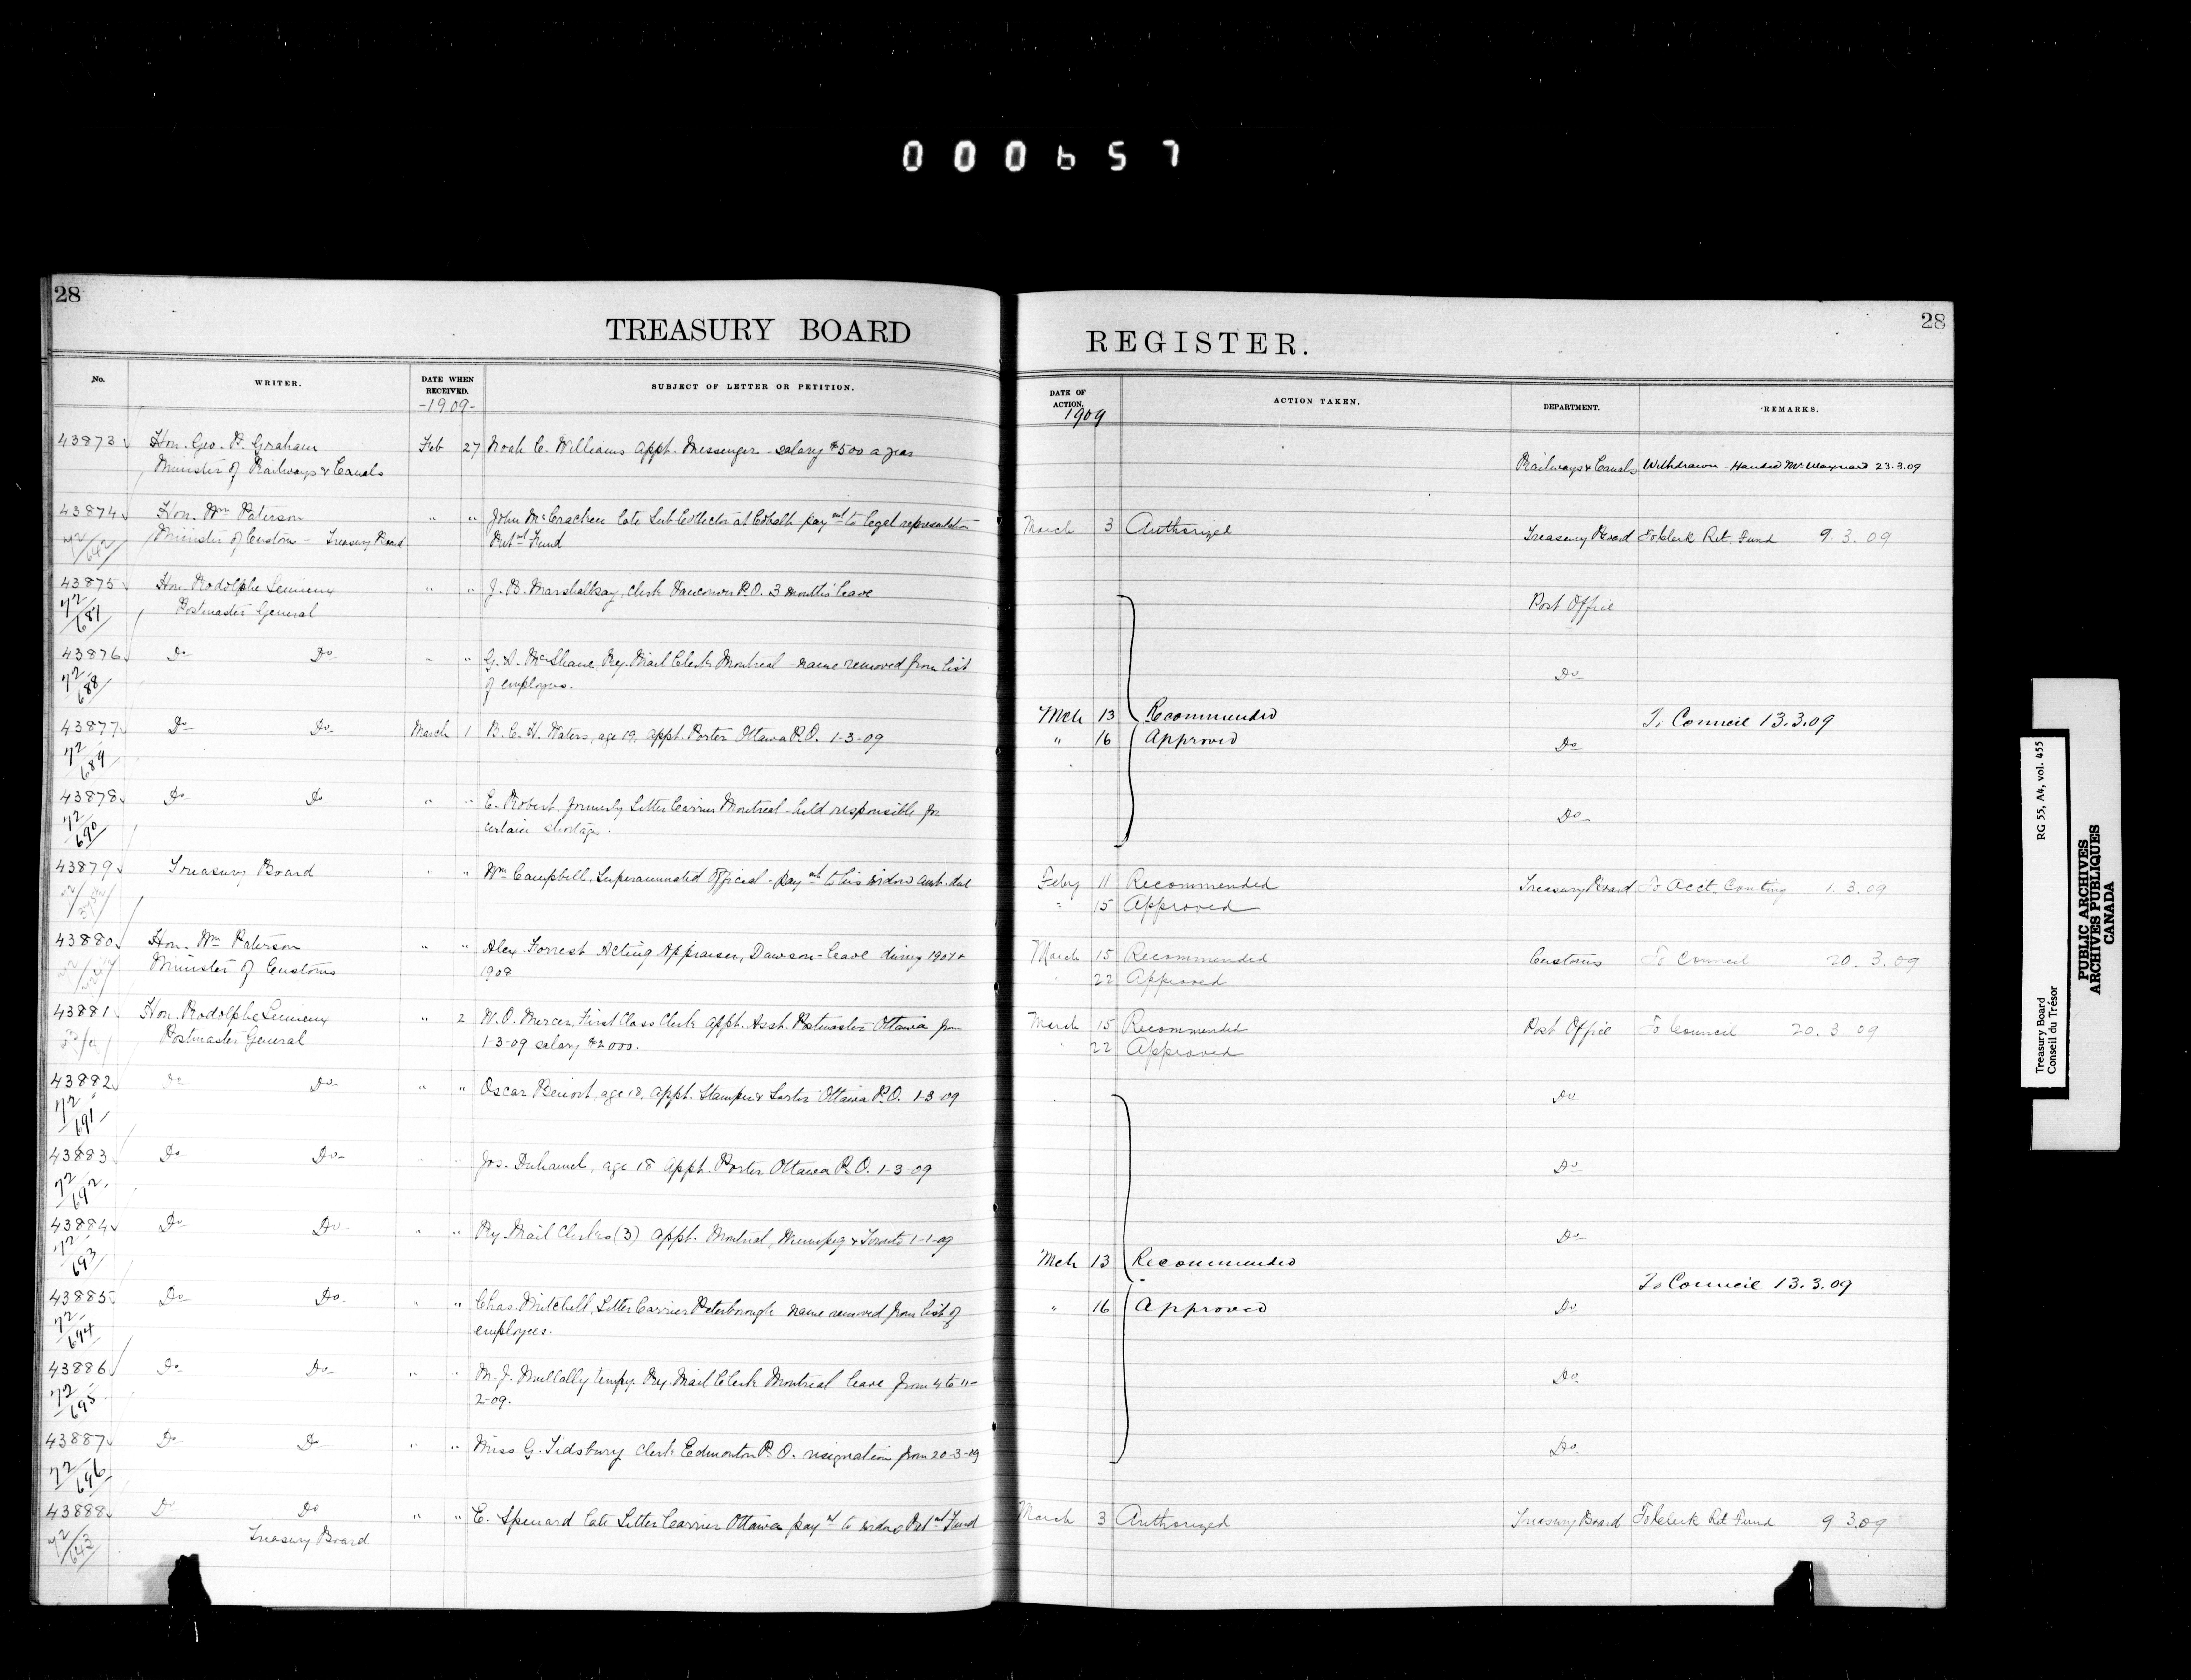 000657
28
TREASURY BOARD
No. WRITER. DATE WHEN RECEIVED. SUBJECT OF LETTER OR PETITION.
-1909-
43873 Hon. Geo. P. Graham Feb 27 Noah C. Williams appt. Messenger - salary $500 a year
Minister of Railways & Canals
43874 Hon. Wm Paterson " " John McCracken late Sub Collector at Cobalt paymt to legal representative
72/642 Minister of Customs - Treasury Board Retmt Fund
43875 Hon. Rodolphe Lemieux " " J. B. Marshallsay, Clerk Vancouver P.O. 3 months leave
72/687 Postmaster General
43876 Do Do " " G. A. McShane, Ry. Mail Clerk Montreal - name removed from list
72/688 of employees.
43877 Do Do March 1 B. C. H. Waters, age 19, appt. Porter Ottawa P.O. 1-3-09
72/689
43878 Do Do " " E. Robert, formerly Letter Carrier Montreal - held responsible for
72/690 certain shortage.
43879 Treasury Board " " Wm Campbell, Superannuated Official - paymt to his widow amt. due
43880 Hon. Wm Paterson " " Alex Forrest Acting Appraiser, Dawson - leave during 1907 &
Minister of Customs 1908
43881 Hon. Rodolphe Lemieux " 2 W. O. Mercer, First Class Clerk appt. Asst. Postmaster Ottawa from
Postmaster General 1-3-09 salary $2000.
43882 Do Do " " Oscar Benoit, age 18, appt. Stamper & Sorter Ottawa P.O. 1-3-09
72/691
43883 Do Do " " Jos. Duhamel, age 18 appt. Porter Ottawa P.O. 1-3-09
72/692
43884 Do Do " " Ry. Mail Clerks (3) appt. Montreal, Winnipeg & Toronto 1-1-09
72/693
43885 Do Do " " Chas. Mitchell, Letter Carrier Peterborough name removed from list of
72/694 employees.
43886 Do Do " " M. J. Mullally tempy. Ry. Mail Clerk Montreal leave from 4 to 11-
72/695 2-09.
43887 Do Do " " Miss G. Tidsbury Clerk Edmonton P.O. resignation from 20-3-09
72/696
43888 Do Do " " E. Spenard late Letter Carrier Ottawa paymt to widow Retmt Fund
72/643 Treasury Board
28
REGISTER.
DATE OF ACTION. ACTION TAKEN. DEPARTMENT. REMARKS.
1909
Railways & Canals Withdrawn - Handed Mr Maynard 23.3.09
March 3 Authorized Treasury Board To Clerk Ret. Fund 9.3.09
Post Office
Do
Mch 13 Recommended To Council 13.3.09
" 16 Approved Do
Do
Feby 11 Recommended Treasury Board To Acct. Conting 1.3.09
" 15 Approved
March 15 Recommended Customs To Council 20.3.09
" 22 Approved
March 15 Recommended Post Office To Council 20.3.09
" 22 Approved
Do
Do
Do
Mch 13 Recommended
To Council 13.3.09
" 16 Approved Do
Do
Do
March 3 Authorized Treasury Board To Clerk Ret Fund 9 3.09
Treasury Board RG 55, A4, vol. 455
Conseil du Trésor
PUBLIC ARCHIVES
ARCHIVES PUBLIQUES
CANADA